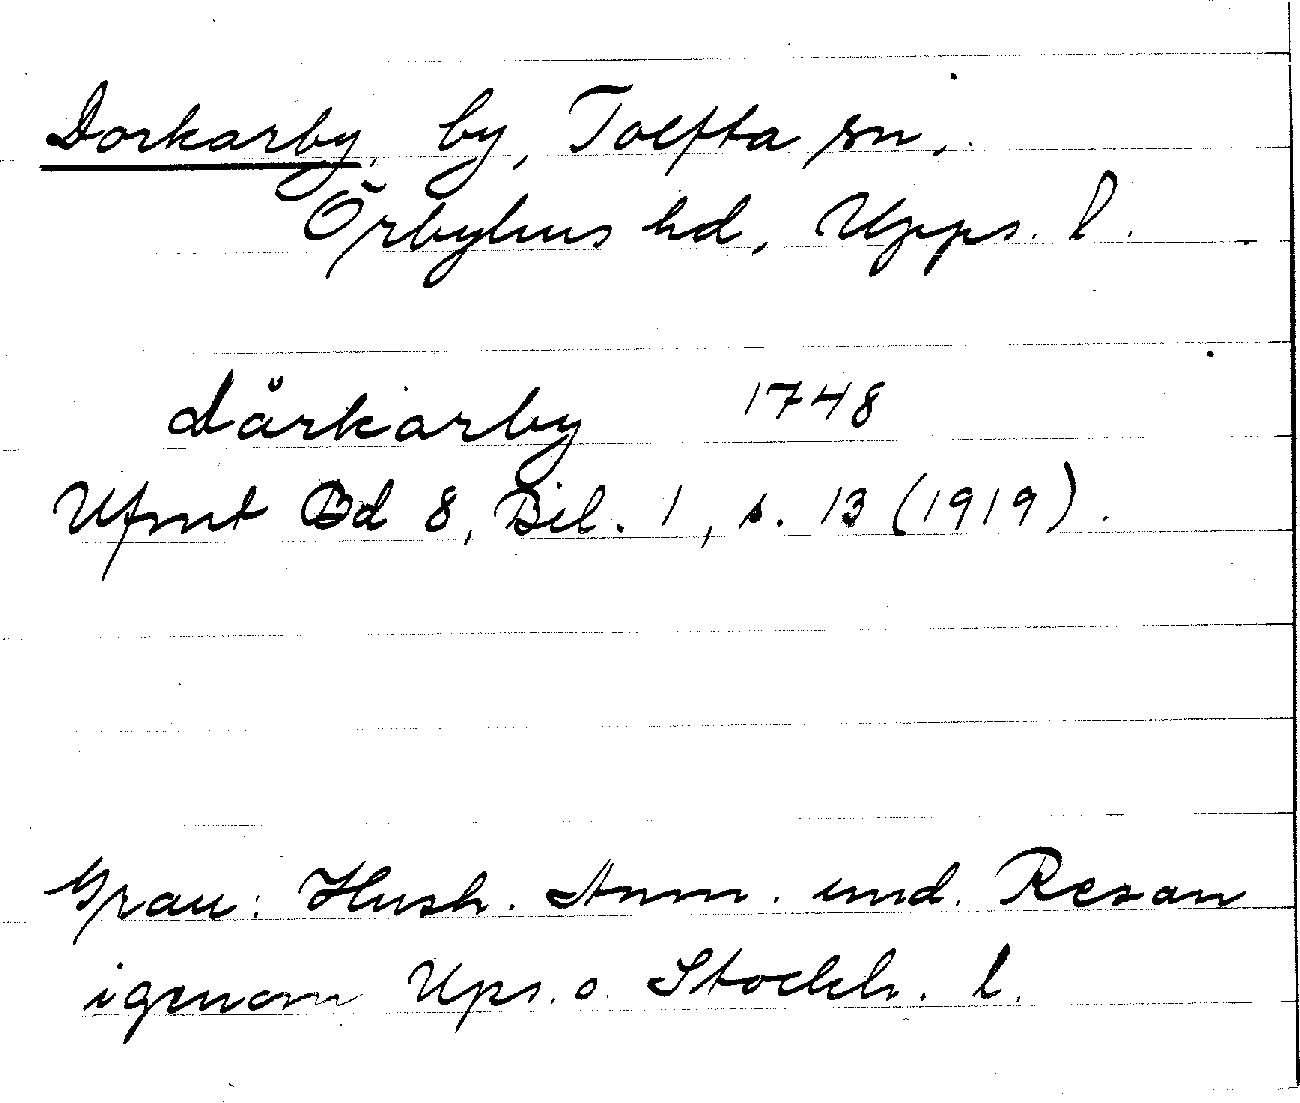 Dorkarby, by, Tolfta sn,
Örbyhus hd, Upps. l.
Dårkarby 1748
Ufmt Bd 8, Bil. 1, s. 13 (1919).
Grau: Hush. Anm. und. Resan
igenom Ups. o. Stockh. l.